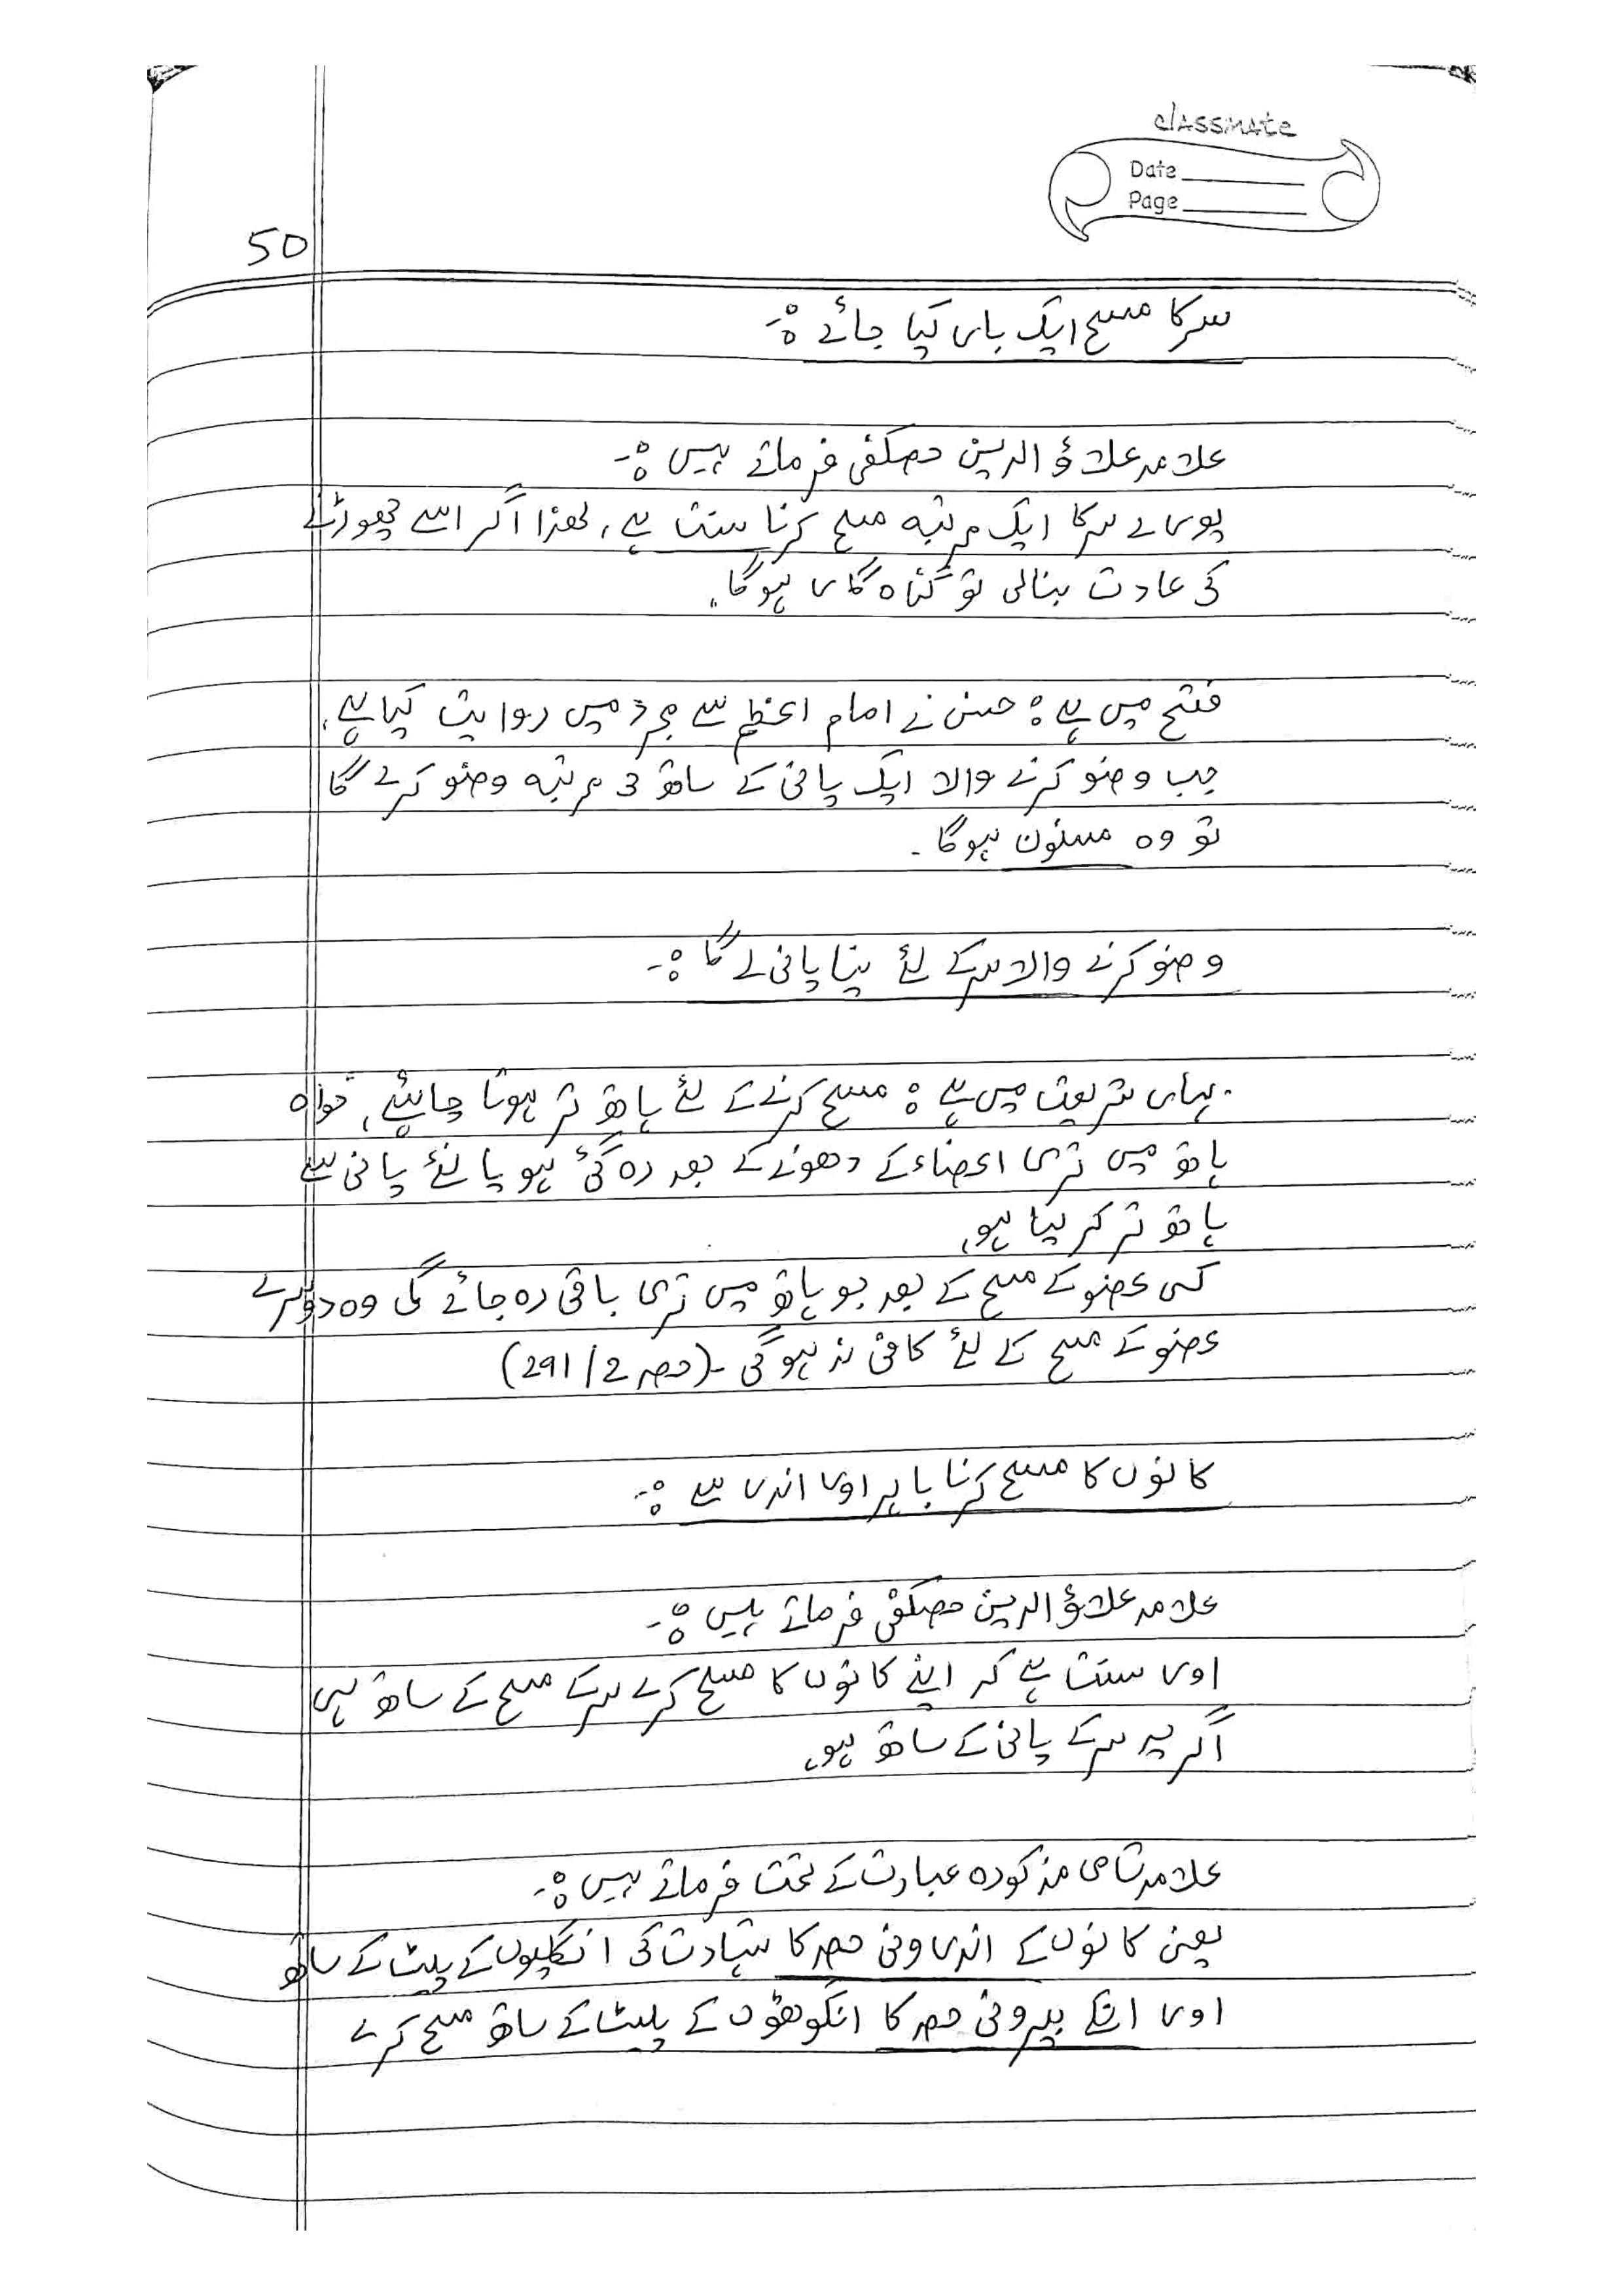 classmate
Date
Page
50
سر کا مسح ایک بار کیا جائے :-
علامہ علاؤ الدین حصکفی فرماتے ہیں :-
پورے سر کا ایک مرتبہ مسح کرنا سنت ہے، لھذا اگر اسے چھوڑنے
کی عادت بنالی تو گناہ گار ہوگا۔
فتح میں ہے : حسن نے امام اعظم سے مجرد میں روایت کیا ہے،
جب وضو کرنے والا ایک پانی کے ساتھ 3 مرتبہ وضو کرے گا
تو وہ مسنون ہوگا۔
وضو کرنے والا سر کے لئے نیا پانی لے گا :-
بہار شریعت میں ہے : مسح کرنے کے لئے ہاتھ تر ہونا چاہیئے، خواہ
ہاتھ میں تری اعضاء کے دھونے کے بعد رہ گئی ہو یا نئے پانی سے
ہاتھ تر کر لیا ہو،
کسی عضو کے مسح کے بعد جو ہاتھ میں تری باقی رہ جائے گی وہ دوسرے
عضو کے مسح کے لئے کافی نہ ہوگی ۔(حصہ 2/291)
کانوں کا مسح کرنا باہر اور اندر سے :-
علامہ علاؤ الدین حصکفی فرماتے ہیں :-
اور سنت ہے کہ اپنے کانوں کا مسح کرے سر کے مسح کے ساتھ ہی
اگرچہ سر کے پانی کے ساتھ ہو،
علامہ شامی مذکورہ عبارت کے تحت فرماتے ہیں :-
یعنی کانوں کے اندرونی حصہ کا شہادت کی انگلیوں کے پیٹ کے ساتھ
اور انکے بیرونی حصہ کا انگوٹھوں کے پیٹ کے ساتھ مسح کرے